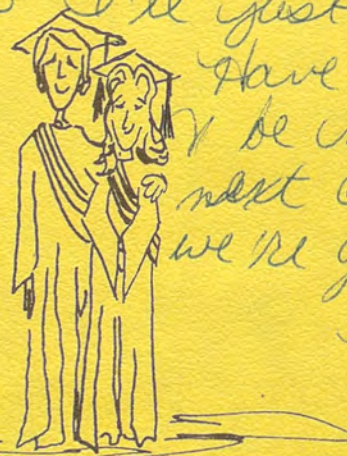 I'll just
Have
& be
next
we're